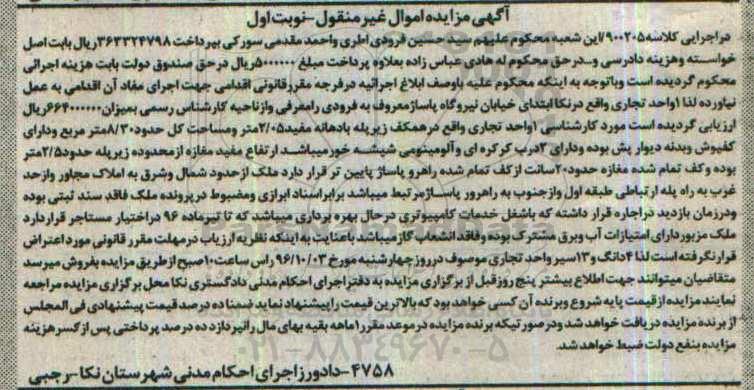 آگهی مزایده اموال غیر منقول-نوبت اول
دراجرایی کلاسه ۹۰۰۲۰۵/این شعبه محکوم علیهم محمد حسین فرودی اطری واحمد مقدمی سورکی بپرداخت ۳۶۳۳۲۴۷۹۸ریال بابت اصل
خواسته وهزینه دادرسی و..درحق محکوم له هادی عباس زاده بعلاوه پرداخت مبلغ ۵۰۰۰۰۰۰ریال درحق صندوق دولت بابت هزینه اجرائی
محکوم گردیده است وباتوجه به اینکه محکوم علیه باوصف ابلاغ اجرائیه درفرجه مقررقانونی اقدامی جهت اجرای مفاد آن اقدامی به عمل
نیاورده لذا ۱واحد تجاری واقع درنکا ابتدای خیابان نیروگاه پاساژمعروف به فرودی رامعرفی وازناحیه کارشناس رسمی بمیزان۶۶۴۰۰۰۰۰۰ریال
ارزیابی گردیده است مورد کارشناسی ۱واحد تجاری واقع درهمکف زیرپله بادهانه مفید۲/۰۵متر ومساحت کل حدود۸/۳۰متر مربع ودارای
کفپوش وبدنه دیوار پش بوده ودارای ۲درب کرکره ای وآلومینومی شیشه خورمیباشد ارتفاع مفید مغازه ازمحدوده زیرپله حدود۲/۵متر
بوده وکف تمام شده مغازه حدود۲۰سانت ازکف تمام شده راهرو پاساژ پایین تر قرار دارد ملک ازحدود شمال وشرق به املاک مجاور وازحد
غرب به راه پله ارتباطی طبقه اول وازجنوب به راهرور پاساژمرتبط میباشد برابراسناد ابرازی ومضبوط درپرونده ملک فاقد سند ثبتی بوده
ودرزمان بازدید دراجاره قرار داشته که باشغل خدمات کامپیوتری درحال بهره برداری میباشد که تا تیرماده ۹۶ دراختیار مستاجر قراردارد
ملک مزبوردارای امتیازات آب وبرق مشترک بوده وفاقد انشعاب گازمیباشد باعنایت به اینکه نظریه ارزیاب درمهلت مقرر قانونی مورد اعتراض
قرارنگرفته است لذا ۴دانگ و۱۳سیر واحد تجاری موصوف درروزچهارشنبه مورخ ۹۶/۱۰/۰۳ راس ساعت ۱۰صبح ازطریق مزایده بفروش میرسد
متقاضیان میتوانند جهت اطلاع بیشتر پنج روزقبل از برگزاری مزایده به دفتراجرای احکام مدنی دادگستری نکا محل برگزاری مزایده مراجعه
نمایند مزایده ازقیمت پایه شروع وبرنده آن کسی خواهد بود که بالاترین قیمت راپیشنهاد نماید ضمنا ده درصد قیمت پیشنهادی فی المجلس
از برنده مزایده دریافت خواهد شد ودرصورتیکه برنده مزایده درموعد مقرر۱ماهه بقیه بهای مال رانپردازد ده درصد پرداختی پس ازکسرهزینه
مزایده بنفع دولت ضبط خواهد شد.
۴۷۵۸-دادورزاجرای احکام مدنی شهرستان نکا-رجبی
۰۲۱-۸۸۳۴۹۶۷۰-۵